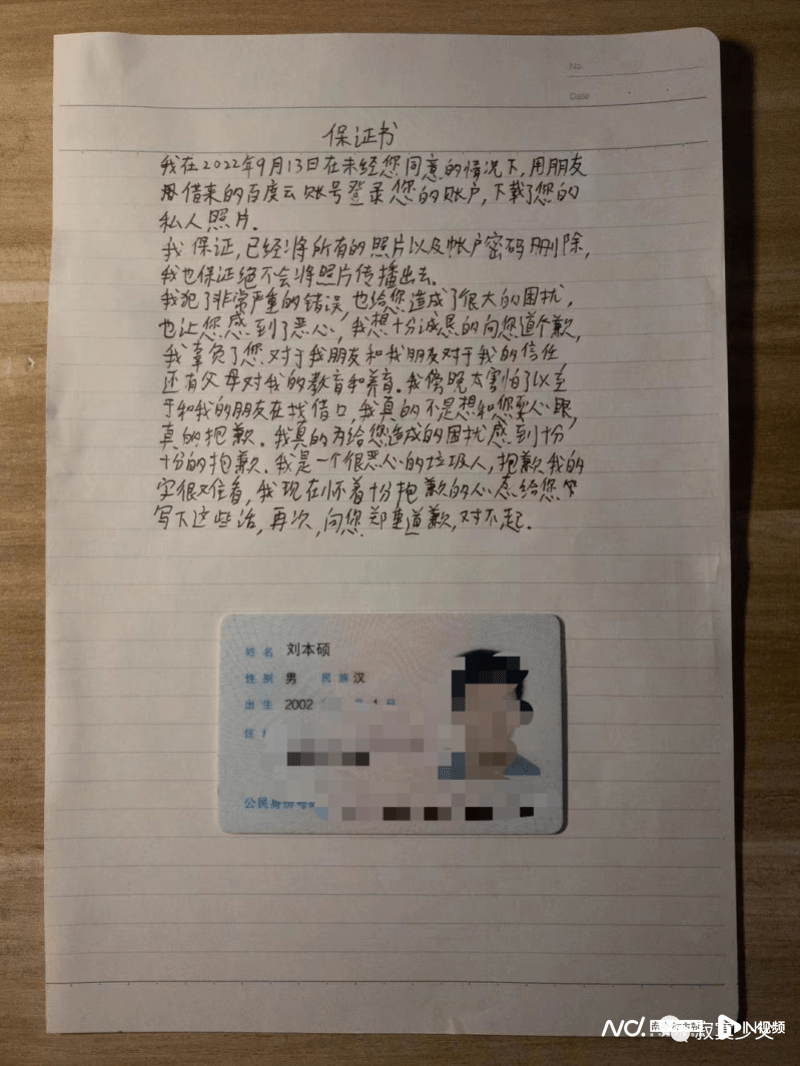 No.
Date
保证书
我在2022年9月13日在未经您同意的情况下,用朋友
借来的百度云账号登录您的账户,下载了您的
私人照片.
我保证,已经将所有的照片以及帐户密码删除,
我也保证绝不会将照片传播出去.
我犯了非常严重的错误,也给您造成了很大的困扰,
也让您感到了恶心,我想十分诚恳的向您道个歉,
我辜负了您对于我朋友和我朋友对于我的信任
还有父母对我的教育和养育.我傍晚太害怕了以至
于和我的朋友在找借口,我真的不是想和您耍心眼,
真的抱歉.我真的为给您造成的困扰感到十分
十分的抱歉.我是一个很恶心的垃圾人,抱歉我的
字很难看,我现在怀着十分抱歉的心态给您
写下这些话,再次,向您郑重道歉,对不起.
姓名 刘本硕
性别 男 民族 汉
出生 2002 1 日
住
公民身份号
N视频
寂寞少女